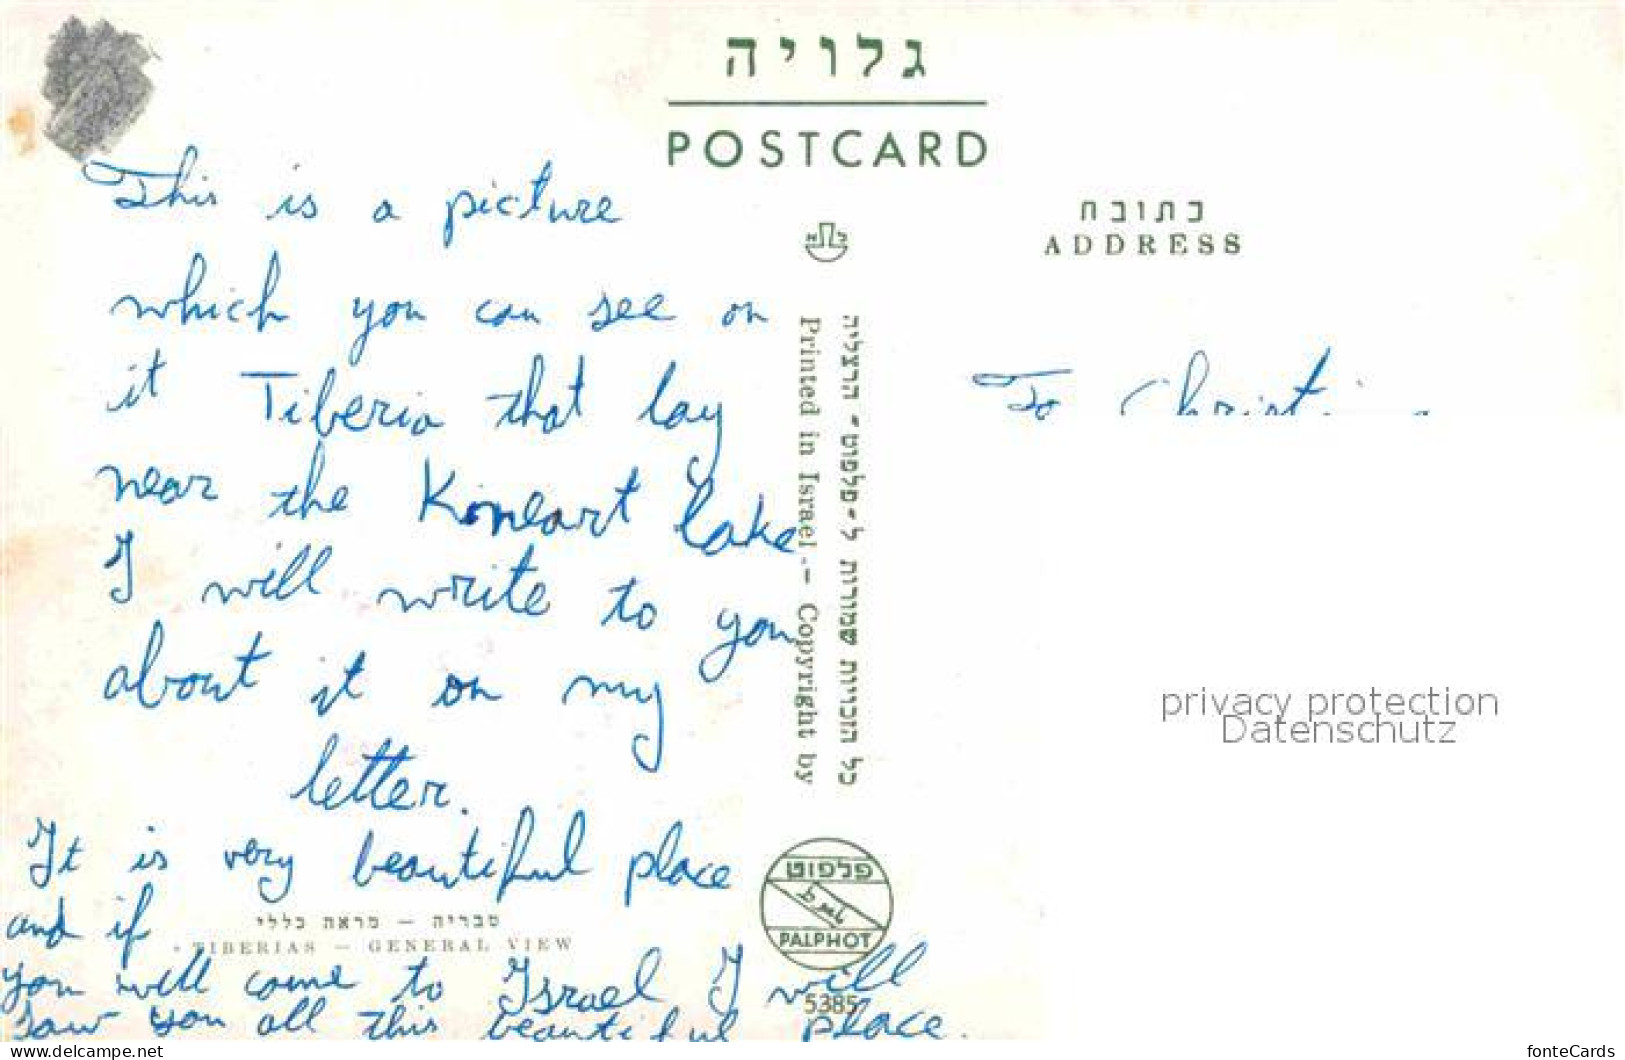 גלויה
POSTCARD
כתובת
ADDRESS
This is a picture
which you can see on
it Tiberia that lay
near the Kineart Lake
I will write to you
about it on my
letter.
It is very beautiful place
and if
you will come to Israel I will
saw you all this beautiful place.
טבריה – מראה כללי
TIBERIAS – GENERAL VIEW
כל הזכויות שמורות ל״פלפוט״ הרצליה
Printed in Israel.– Copyright by
פלפוט
PALPHOT
5385
To Christi
privacy protection
Datenschutz
www.delcampe.net
fonteCards